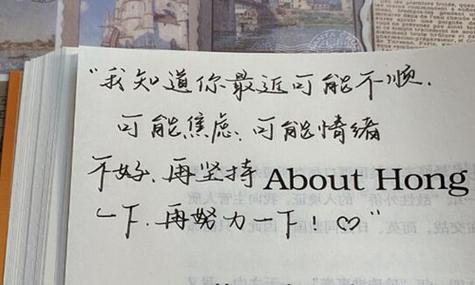 “我知道你最近可能不顺.
可能焦虑.可能情绪
不好.再坚持 About Hong
一下.再努力一下！♡”